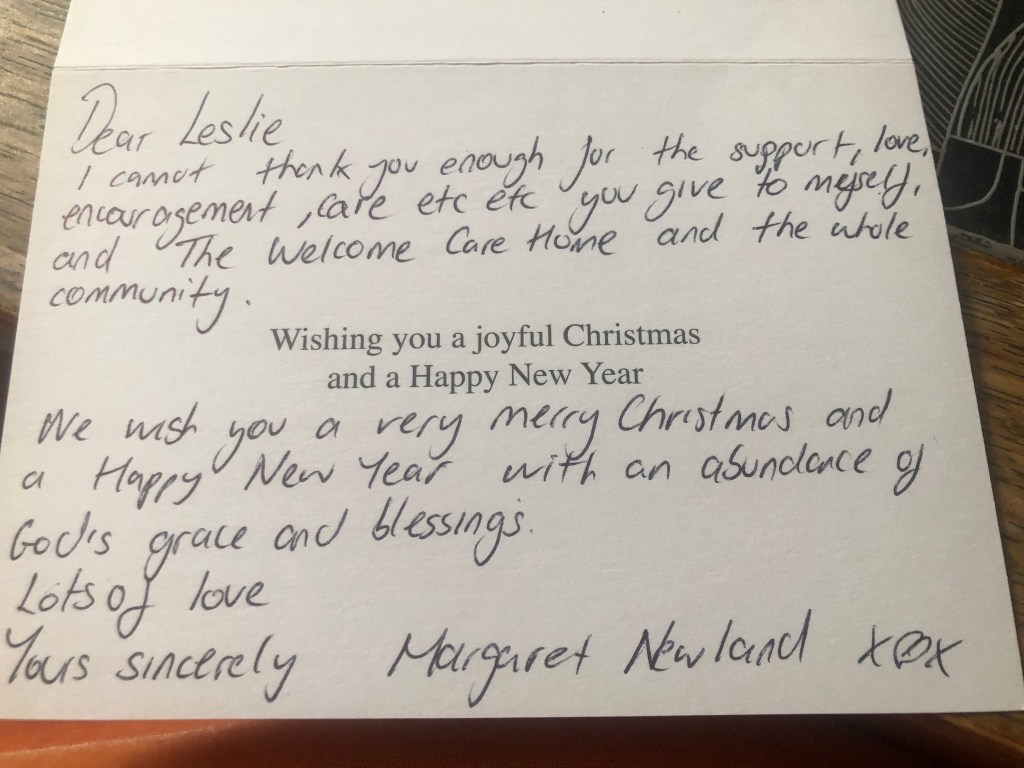 Dear Leslie
I cannot thank you enough for the support, love,
encouragement, care etc etc you give to myself,
and The Welcome Care Home and the whole
community.
Wishing you a joyful Christmas
and a Happy New Year
We wish you a very merry Christmas and
a Happy New Year with an abundance of
God's grace and blessings.
Lots of love
Yours sincerely Margaret Newland xox